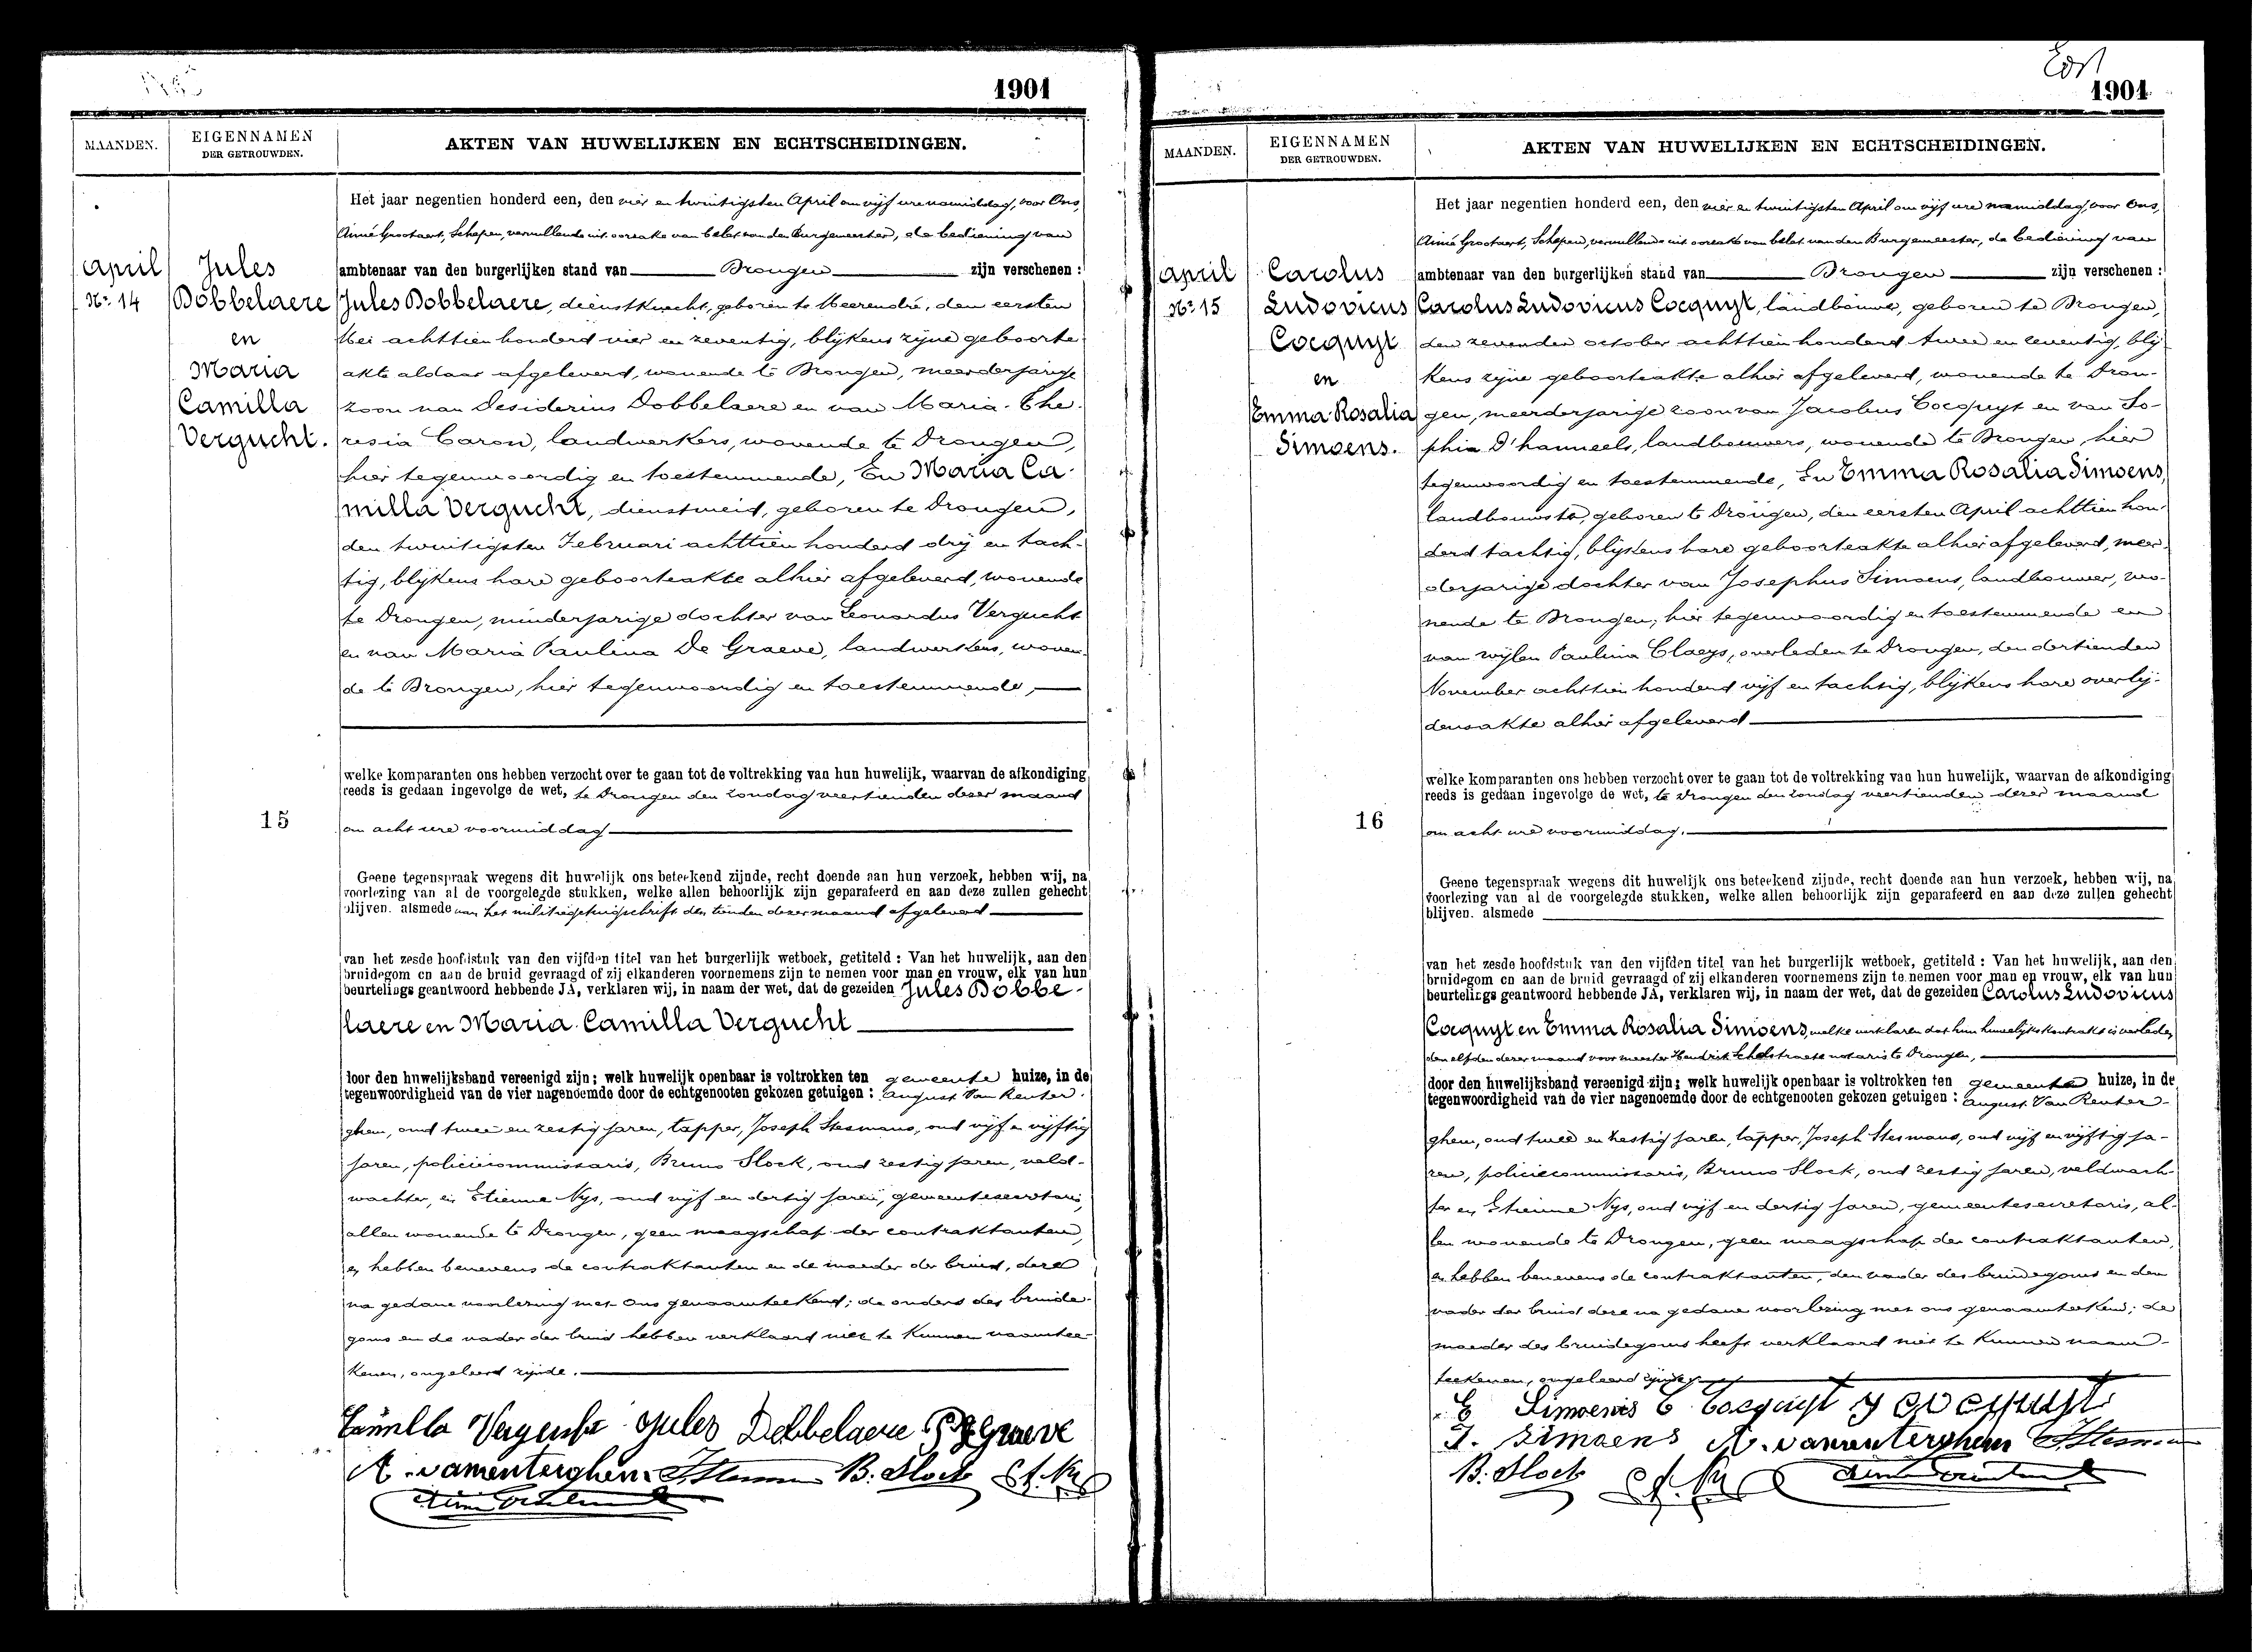 1901
MAANDEN.
EIGENNAMEN
DER GETROUWDEN.
AKTEN VAN HUWELIJKEN EN ECHTSCHEIDINGEN.
April
No. 14
Jules
Dobbelaere
en
Maria
Camilla
Vergucht.
15
Het jaar negentien honderd een, den vier en twintigsten April om vijf ure namiddag, voor Ons,
Aimé Grootaert, Schepen, vervullende uit oorzake van belet van den Burgemeester, de bediening van
ambtenaar van den burgerlijken stand van Drongen zijn verschenen :
Jules Dobbelaere, dienstknecht, geboren te Meerendré, den eersten
Mei achttien honderd vier en zeventig, blijkens zijne geboorte
akte aldaar afgeleverd, wonende te Drongen, meerderjarige
zoon van Desiderius Dobbelaere en van Maria The-
resia Caron, landwerkers, wonende te Drongen,
hier tegenwoordig en toestemmende, En Maria Ca-
milla Vergucht, dienstmeid, geboren te Drongen,
den twintigsten Februari achttien honderd drij en tach-
tig, blijkens hare geboorteakte alhier afgeleverd, wonende
te Drongen, minderjarige dochter van Leonardus Vergucht
en van Maria Paulina De Graeve, landwerkers, wonen-
de te Drongen, hier tegenwoordig en toestemmende,
welke komparanten ons hebben verzocht over te gaan tot de voltrekking van hun huwelijk, waarvan de afkondiging
reeds is gedaan ingevolge de wet, te Drongen den zondag veertienden dezer maand
om acht ure voormiddag
Geene tegenspraak wegens dit huwelijk ons beteekend zijnde, recht doende aan hun verzoek, hebben wij, na
voorlezing van al de voorgelegde stukken, welke allen behoorlijk zijn geparafeerd en aan deze zullen gehecht
blijven. alsmede van het militiegetuigschrift den tienden dezer maand afgeleverd
van het zesde hoofdstuk van den vijfden titel van het burgerlijk wetboek, getiteld : Van het huwelijk, aan den
bruidegom en aan de bruid gevraagd of zij elkanderen voornemens zijn te nemen voor man en vrouw, elk van hun
beurtelings geantwoord hebbende JA, verklaren wij, in naam der wet, dat de gezeiden Jules Dobbe-
laere en Maria Camilla Vergucht
door den huwelijksband vereenigd zijn; welk huwelijk openbaar is voltrokken ten gemeente huize, in de
tegenwoordigheid van de vier nagenoemde door de echtgenooten gekozen getuigen : August Van Renter-
ghem, oud twee en zestig jaren, tapper, Joseph Stesmans, oud vijf en vijftig
jaren, policiecommissaris, Bruno Slock, oud zestig jaren, veld-
wachter, en Etienne Nys, oud vijf en dertig jaren, gemeentesecretaris,
allen wonende te Drongen, geen maagschap der contraktanten,
en hebben benevens de contraktanten en de moeder der bruid, deze
na gedane voorlezing met Ons genaamteekend; de ouders des bruide-
goms en de vader der bruid hebben verklaard niet te kunnen naamtee-
kenen, ongeleerd zijnde.
Camilla Vergucht Jules Dobbelaere P De Graeve
A. vanrenterghem J. Stesmans B. Slock
1901
MAANDEN.
EIGENNAMEN
DER GETROUWDEN.
AKTEN VAN HUWELIJKEN EN ECHTSCHEIDINGEN.
April
No. 15
Carolus
Ludovicus
Cocquyt
en
Emma Rosalia
Simoens.
16
Het jaar negentien honderd een, den vier en twintigsten April om vijf ure namiddag, voor Ons,
Aimé Grootaert, Schepen, vervullende uit oorzake van belet van den Burgemeester, de bediening van
ambtenaar van den burgerlijken stand van Drongen zijn verschenen :
Carolus Ludovicus Cocquyt, landbouwer, geboren te Drongen,
den zevenden october achttien honderd twee en zeventig, blij-
kens zijne geboorteakte alhier afgeleverd, wonende te Dron-
gen, meerderjarige zoon van Jacobus Cocquyt en van So-
phia D'hanneels, landbouwers, wonende te Drongen, hier
tegenwoordig en toestemmende, En Emma Rosalia Simoens,
landbouwster, geboren te Drongen, den eersten April achttien hon-
derd tachtig, blijkens hare geboorteakte alhier afgeleverd, meer-
derjarige dochter van Josephus Simoens, landbouwer, wo-
nende te Drongen, hier tegenwoordig en toestemmende en
van wijlen Paulina Claeys, overleden te Drongen, den dertienden
November achttien honderd vijf en tachtig, blijkens hare overlij-
densakte alhier afgeleverd
welke komparanten ons hebben verzocht over te gaan tot de voltrekking van hun huwelijk, waarvan de afkondiging
reeds is gedaan ingevolge de wet, te Drongen den zondag veertienden dezer maand
om acht ure voormiddag.
Geene tegenspraak wegens dit huwelijk ons beteekend zijnde, recht doende aan hun verzoek, hebben wij, na
voorlezing van al de voorgelegde stukken, welke allen behoorlijk zijn geparafeerd en aan deze zullen gehecht
blijven. alsmede
van het zesde hoofdstuk van den vijfden titel van het burgerlijk wetboek, getiteld : Van het huwelijk, aan den
bruidegom en aan de bruid gevraagd of zij elkanderen voornemens zijn te nemen voor man en vrouw, elk van hun
beurtelings geantwoord hebbende JA, verklaren wij, in naam der wet, dat de gezeiden Carolus Ludovicus
Cocquyt en Emma Rosalia Simoens, welke verklaren dat hun huwelijkskontrakt is verleden
den elfden dezer maand voor meester Hendrik Schelstraete notaris te Drongen,
door den huwelijksband vereenigd zijn; welk huwelijk openbaar is voltrokken ten gemeente huize, in de
tegenwoordigheid van de vier nagenoemde door de echtgenooten gekozen getuigen : August Van Renter-
ghem, oud twee en zestig jaren, tapper, Joseph Stesmans, oud vijf en vijftig ja-
ren, policiecommissaris, Bruno Slock, oud zestig jaren, veldwach-
ter en Etienne Nys, oud vijf en dertig jaren, gemeentesecretaris, al-
len wonende te Drongen, geen maagschap der contraktanten,
en hebben benevens de contraktanten, den vader des bruidegoms en den
vader der bruid deze na gedane voorlezing met ons genaamteekend; de
moeder des bruidegoms heeft verklaard niet te kunnen naam-
teekenen, ongeleerd zijnde
E Simoens C Cocquyt J cocquyt
J. Simoens A. vanrenterghem J. Stesmans
B. Slock